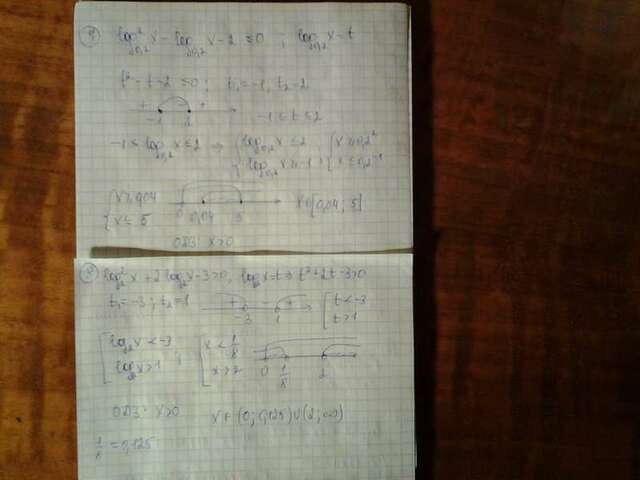 log²₀,₂ x − log₀,₂ x − 2 ≤ 0 ; log₀,₂ x = t
t² − t − 2 ≤ 0 ; t₁ = −1, t₂ = 2
+ − +
−1 2
−1 ≤ t ≤ 2
−1 ≤ log₀,₂ x ≤ 2 ⇒ { log₀,₂ x ≤ 2 { x ≥ 0,2²
{ log₀,₂ x ≥ −1 ; { x ≤ 0,2⁻¹
{ x ≥ 0,04
{ x ≤ 5
0 0,04 5
x ∈ [0,04 ; 5]
ОДЗ: x>0
log₂² x + 2 log₂ x − 3 > 0, log₂ x = t ⇒ t² + 2t − 3 > 0
t₁ = −3 ; t₂ = 1
+ − +
−3 1
[ t < −3
[ t > 1
[ log₂ x < −3
[ log₂ x > 1 ;
[ x < 1/8
[ x > 2
0 1/8 2
ОДЗ: x>0 x ∈ (0 ; 0,125) ∪ (2 ; ∞)
1/8 = 0,125